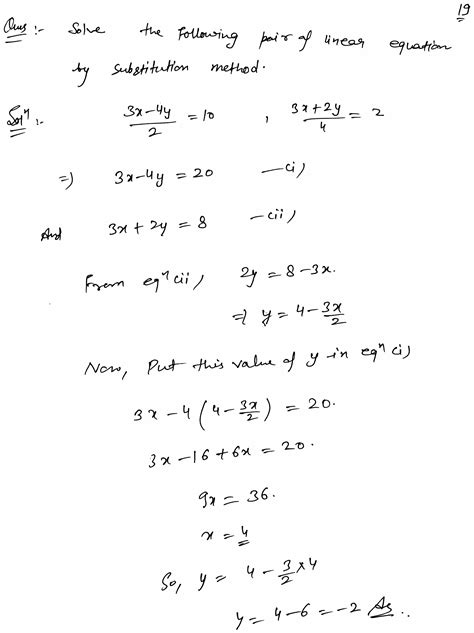 19
Ques :- Solve the following pair of linear equation
by substitution method.
Solⁿ :- (3x-4y)/2 = 10 , (3x+2y)/4 = 2
=) 3x-4y = 20 —(i)
And 3x + 2y = 8 —(ii)
From eqⁿ (ii) 2y = 8-3x.
=) y = 4 - 3x/2
Now, Put this value of y in eqⁿ (i)
3x - 4(4 - 3x/2) = 20.
3x - 16 + 6x = 20.
9x = 36.
x = 4
So, y = 4 - 3/2 x 4
y = 4-6 = -2 As ..